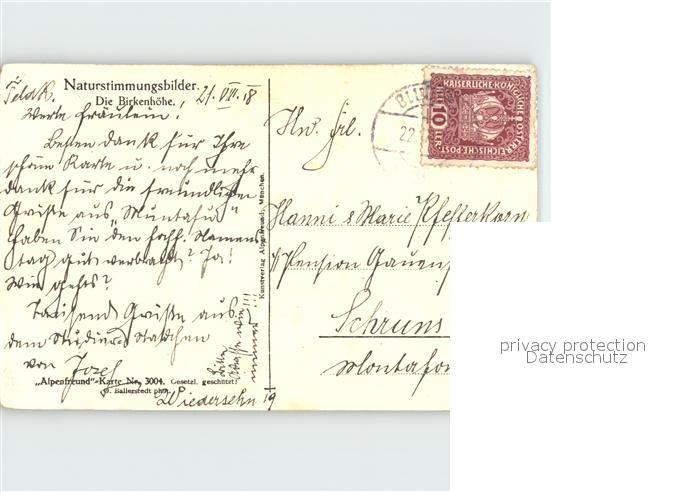 Naturstimmungsbilder.
Die Birkenhöhe.
Feldk. 21. VIII. 18
Werte Fräulein!
Besten Dank für Ihre
schöne Karte u. noch mehr
dank für die freundlichen
Grüße aus „Muntafun"
Haben Sie den hochh. Namens
tag gut verbracht? Ja!
Wie gehts?
Tausend Grüße aus
dem Studier Städtchen
von Josef
bitte
Straße wie
immer!!!
Wiedersehn
„Alpenfreund"-Karte No. 3004. Gesetzl. geschützt!
O. Ballerstedt phot.
Kunstverlag Alpenfreund, München.
19
KAISERLICHE KÖNIGLICHE ÖSTERREICHISCHE POST
HELLER 10 HELLER
22
Frl.
Hanni & Marie Pfefferkorn
Pension Gauen
Schruns
Montafon
privacy protection
Datenschutz